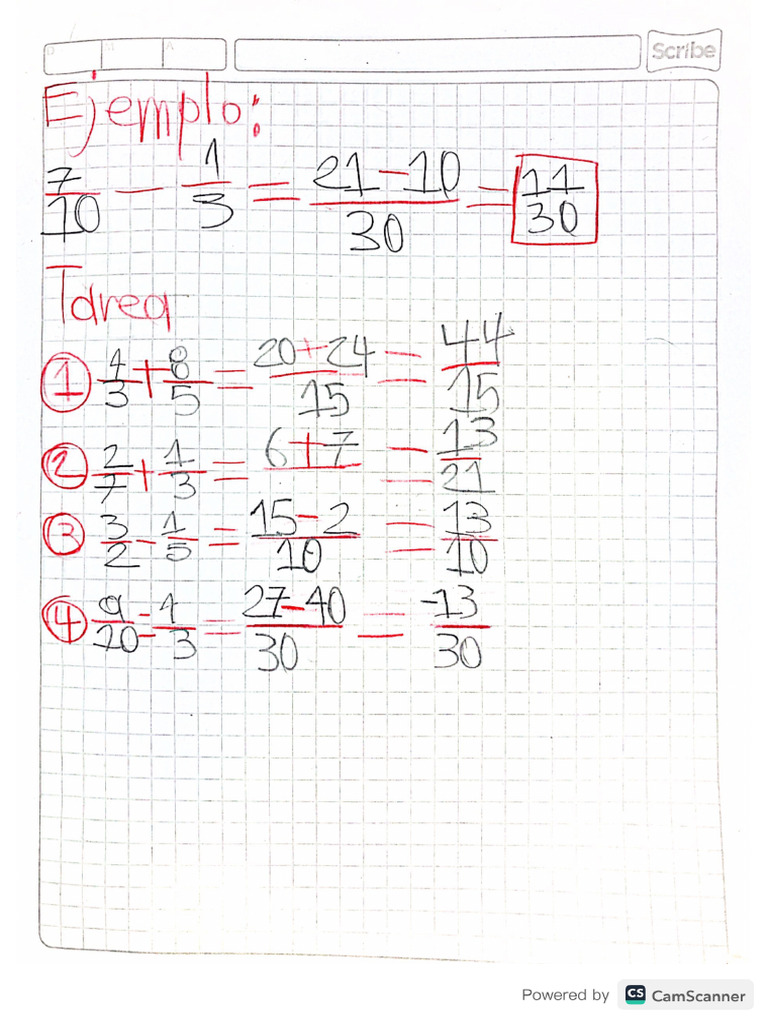 D M A Scribe
Ejemplo:
7/10 - 1/3 = 21-10/30 = 11/30
Tarea
① 4/3 + 8/5 = 20+24/15 = 44/15
② 2/7 + 1/3 = 6+7 = 13/21
③ 3/2 - 1/5 = 15-2/10 = 13/10
④ 9/10 - 4/3 = 27-40/30 = -13/30
Powered by CS CamScanner